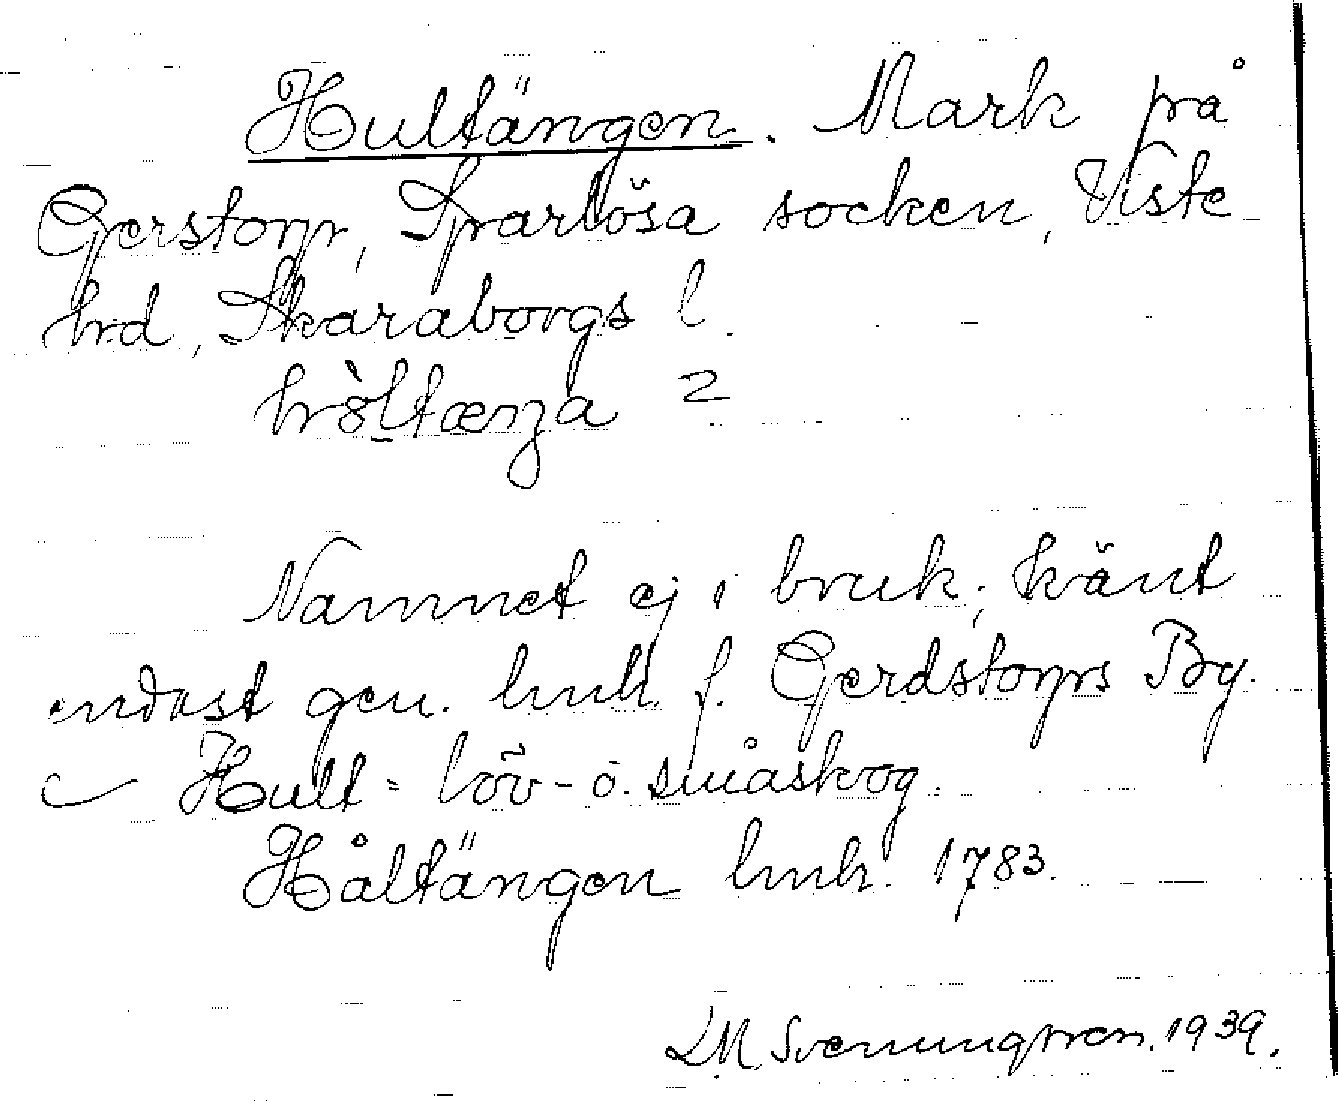 Hultängen. Mark på
Gerstorp, Sparlösa socken, Viste
hd, Skaraborgs l.
Namnet ej i bruk; känt
endast gen. lmh. f. Gerdstorps By.
Hult = löv- o. småskog.
Håltängen lmh. 1783.
LM Svenungsson. 1939.